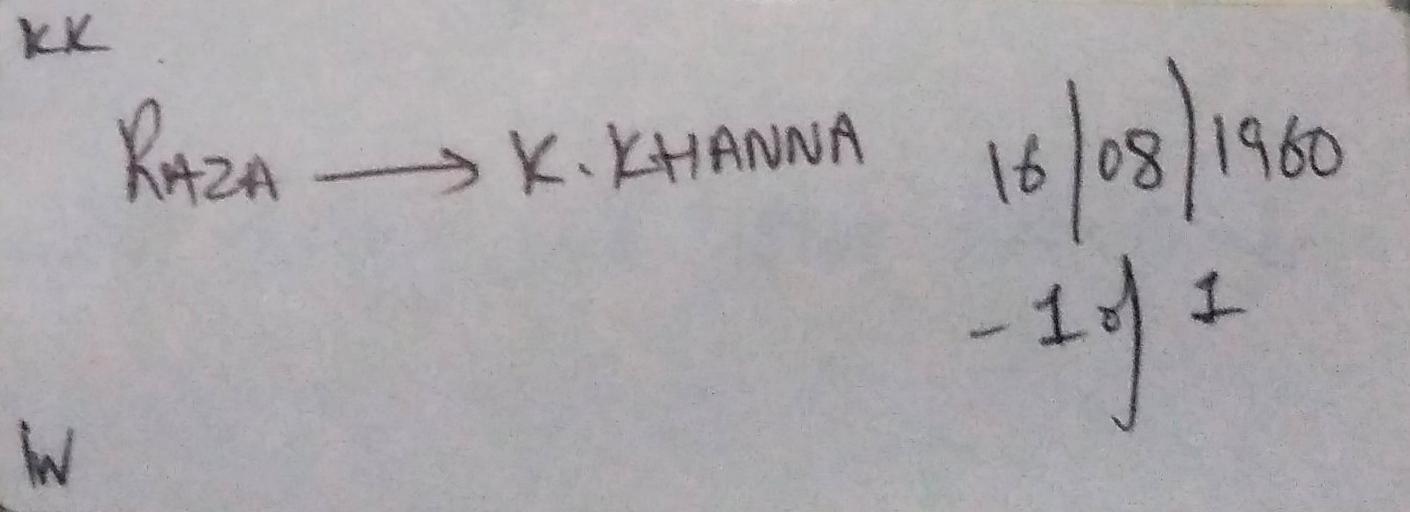 KK
RAZA → K. KHANNA 16/08/1960
- 1 of 1